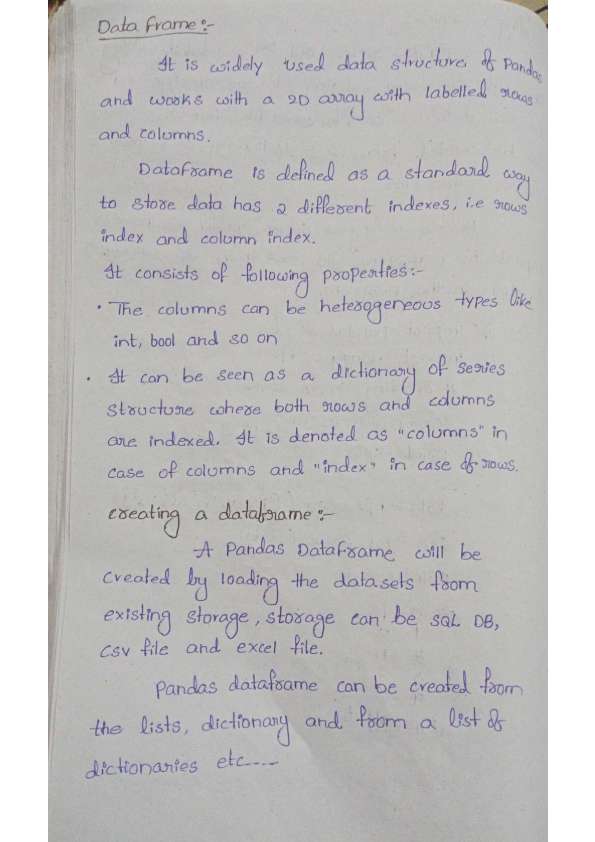 Data Frame:-
It is widely used data structure of Pandas
and works with a 2D array with labelled rows
and columns.
Dataframe is defined as a standard way
to store data has 2 different indexes, i.e rows
index and column index.
It consists of following properties:-
• The columns can be heterogeneous types like
int, bool and so on
• It can be seen as a dictionary of series
structure where both rows and columns
are indexed. It is denoted as "columns" in
case of columns and "index" in case of rows.
creating a dataframe:-
A Pandas DataFrame will be
created by loading the datasets from
existing storage, storage can be SQL DB,
CSV file and excel file.
Pandas dataframe can be created from
the lists, dictionary and from a list of
dictionaries etc----